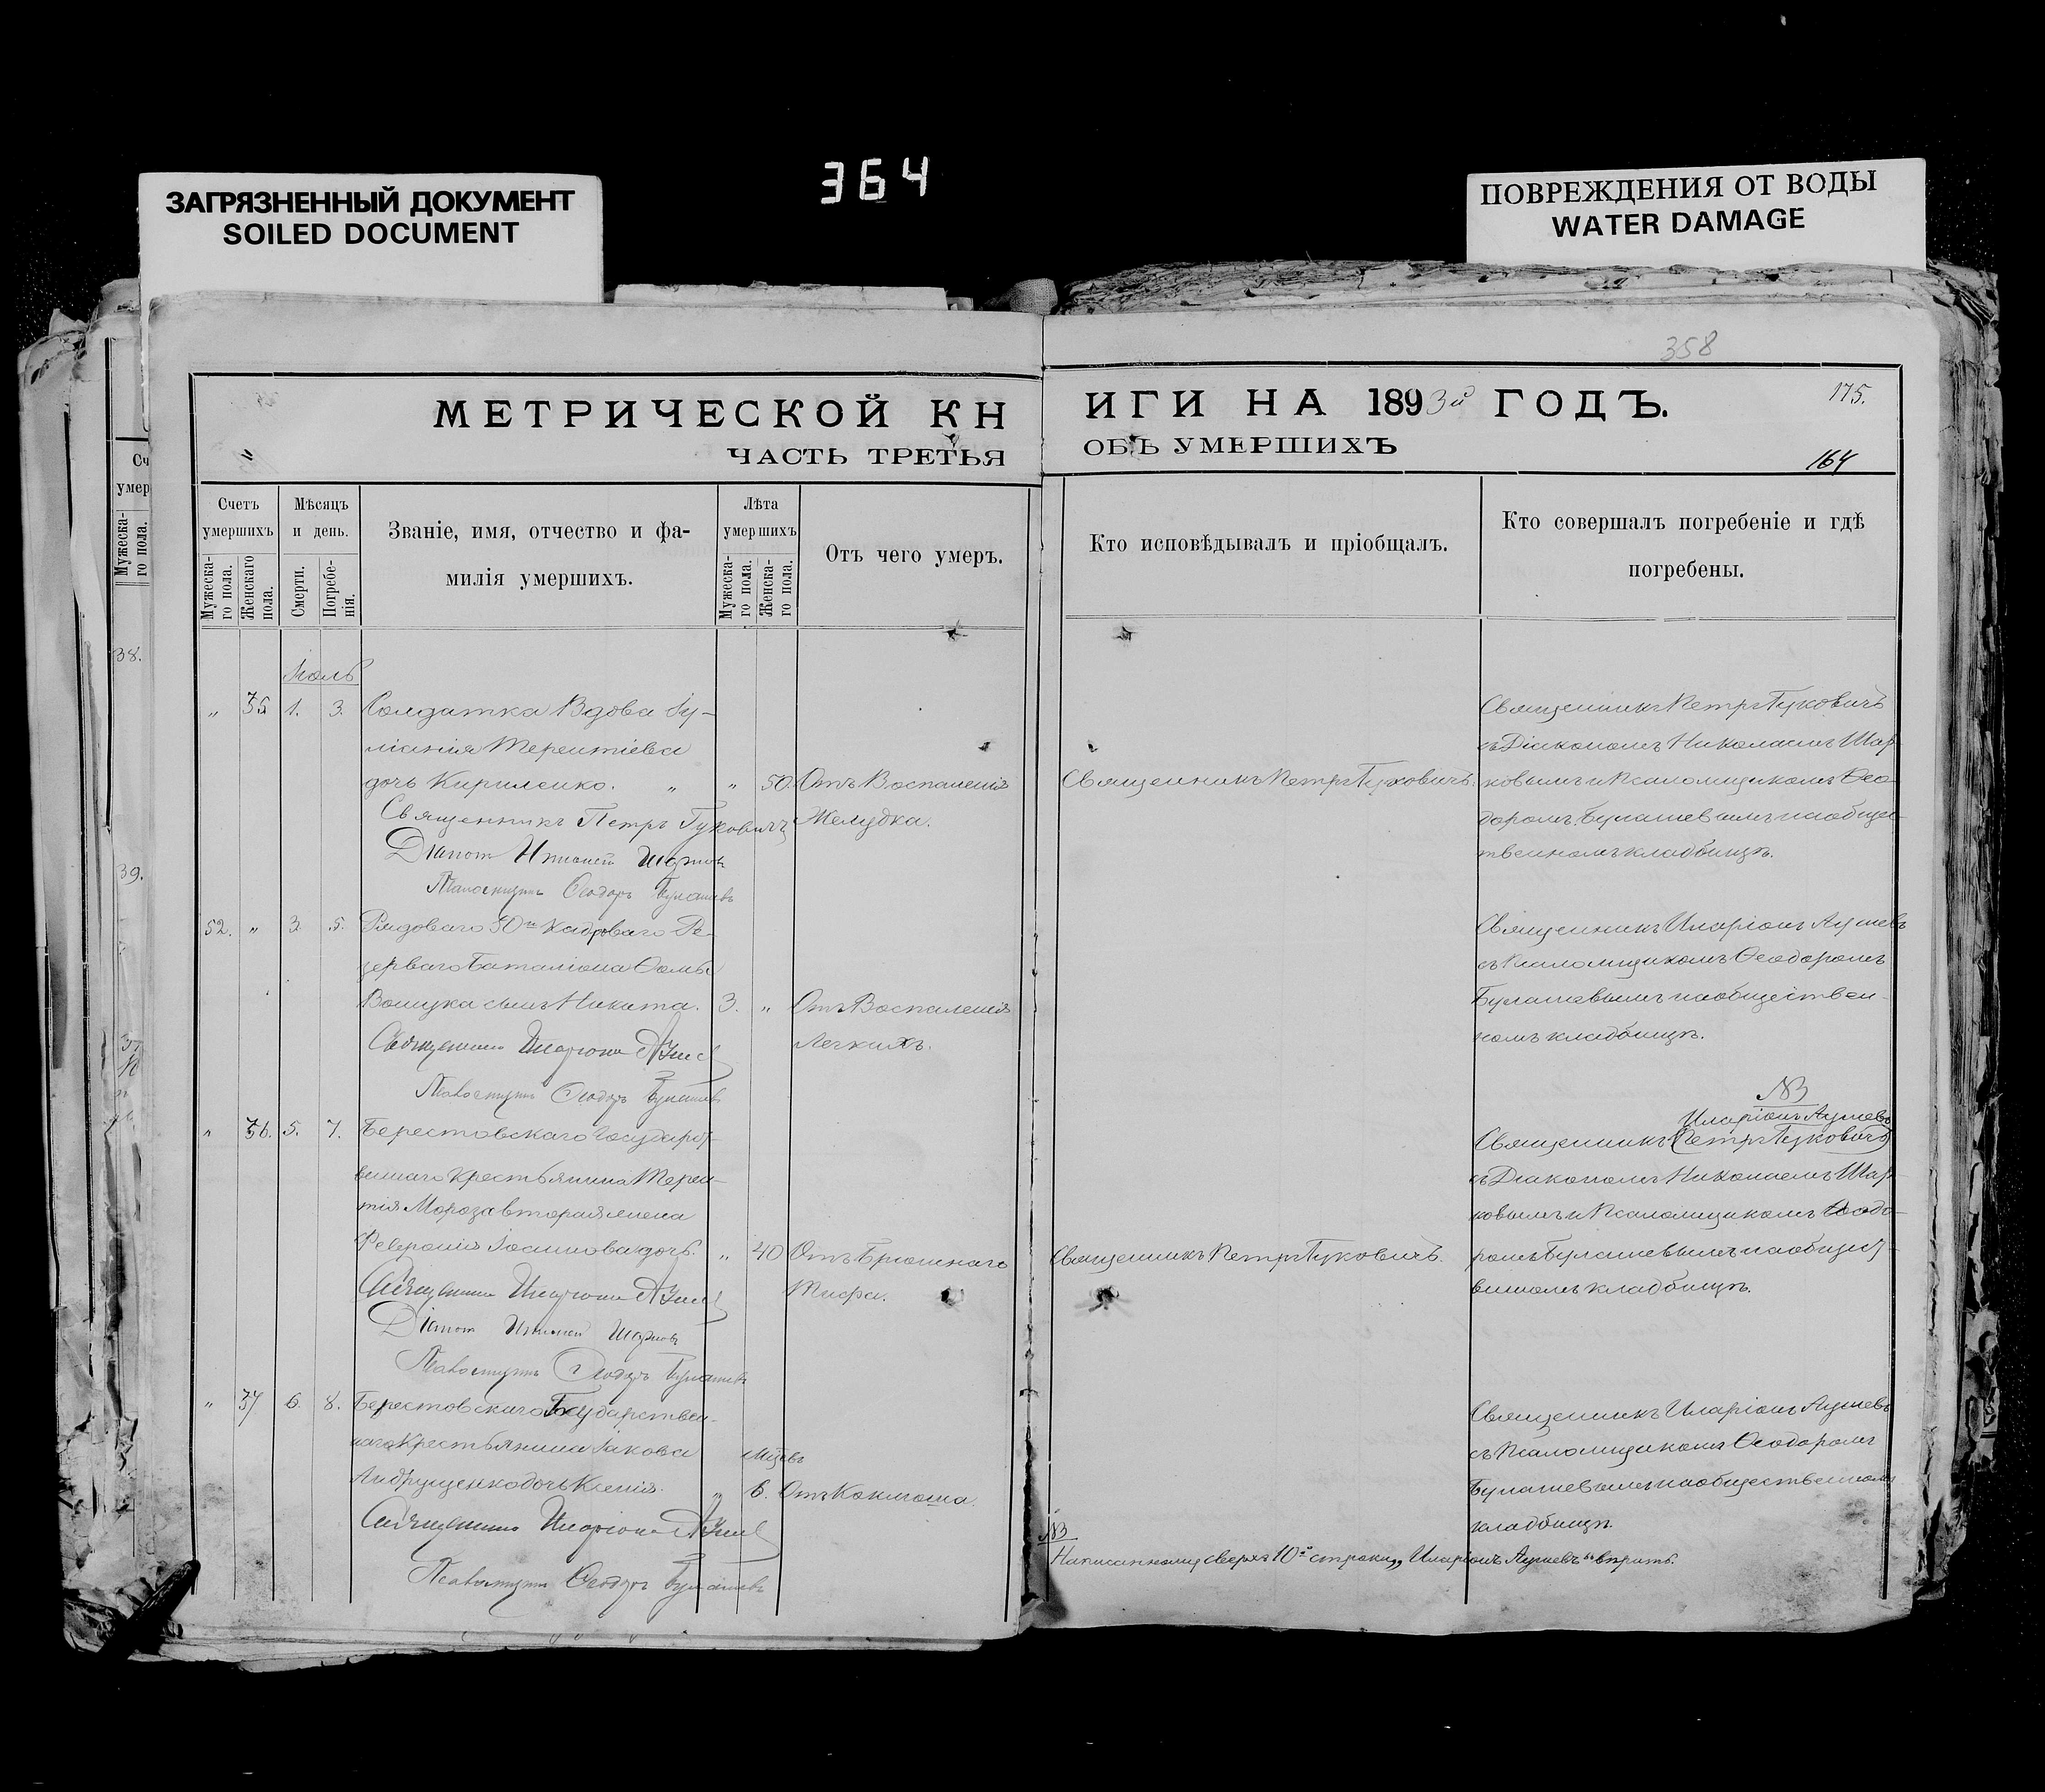 364
ЗАГРЯЗНЕННЫЙ ДОКУМЕНТ
SOILED DOCUMENT
ПОВРЕЖДЕНИЯ ОТ ВОДЫ
WATER DAMAGE
358
МЕТРИЧЕСКОЙ КН
ИГИ НА 1893й ГОДЪ.
175.
ЧАСТЬ ТРЕТЬЯ
ОБЪ УМЕРШИХЪ
164
Счетъ умершихъ
Мужеска-го пола.
Женскаго пола.
Мѣсяцъ и день.
Смерти.
Погребе-нія.
Званіе, имя, отчество и фа-
милія умершихъ.
Лѣта умершихъ
Мужеска-го пола.
Женска-го пола.
Отъ чего умеръ.
Кто исповѣдывалъ и пріобщалъ.
Кто совершалъ погребеніе и гдѣ
погребены.
38.
39.
Іюль
„ 35 1. 3. Солдатка Вдова Іу-
ліанія Терентіева
дочь Кириленко. „ „ 50. Отъ Воспаленія
Желудка.
Священникъ Петръ Гуковичъ
Діаконъ Николай Шарковъ
Псаломщикъ Ѳеодоръ Булашевъ
Священникъ Петръ Гуковичъ.
Священникъ Петръ Гуковичъ
съ Діакономъ Николаемъ Шар-
ковымъ и Псаломщикомъ Ѳео-
доромъ Булашевымъ на общес-
твенномъ кладбищѣ.
52. „ 3. 5. Рядоваго 50го Кадроваго Ре-
зерваго Баталіона Ѳомы
сынъ Никита. 3. „ Отъ Воспаленія
Легкихъ.
Священникъ Иларіонъ
Псаломщикъ Ѳеодоръ Булашевъ
Священникъ Иларіонъ
съ Псаломщикомъ Ѳеодоромъ
Булашевымъ на обществен-
номъ кладбищѣ.
„ 36. 5. 7. Берестовскаго Государст-
веннаго Крестьянина Терен-
тія Мороза вторая жена
Февронія Іоаннова дочь. „ 40 Отъ Брюшнаго
Тифа.
Священникъ Иларіонъ
Діаконъ Николай Шарковъ
Псаломщикъ Ѳеодоръ Булашевъ
Священникъ Петръ Гуковичъ.
NB
Иларіонъ
Священникъ (Петръ Гуковичъ)
съ Діакономъ Николаемъ Шар-
ковымъ и Псаломщикомъ Ѳеодо-
ромъ Булашевымъ на общест-
венномъ кладбищѣ.
„ 37 6. 8. Берестовскаго Государствен-
наго Крестьянина Іакова
Андрущенко дочь Ксенія. „ Мѣсяцъ 6. Отъ Коклюша.
Священникъ Иларіонъ
Псаломщикъ Ѳеодоръ Булашевъ
Священникъ Иларіонъ
съ Псаломщикомъ Ѳеодоромъ
Булашевымъ на общественномъ
кладбищѣ.
NB
Написанному сверхъ 10й строки „Иларіонъ “ вѣрить.